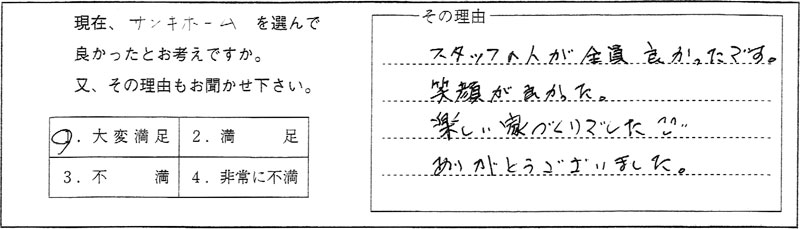 現在、サンキホーム を選んで
良かったとお考えですか。
又、その理由もお聞かせ下さい。
1. 大変満足 2. 満 足
3. 不 満 4. 非常に不満
その理由
スタッフの人が全員良かったです。
笑顔が良かった。
楽しい家づくりでした
ありがとうございました。